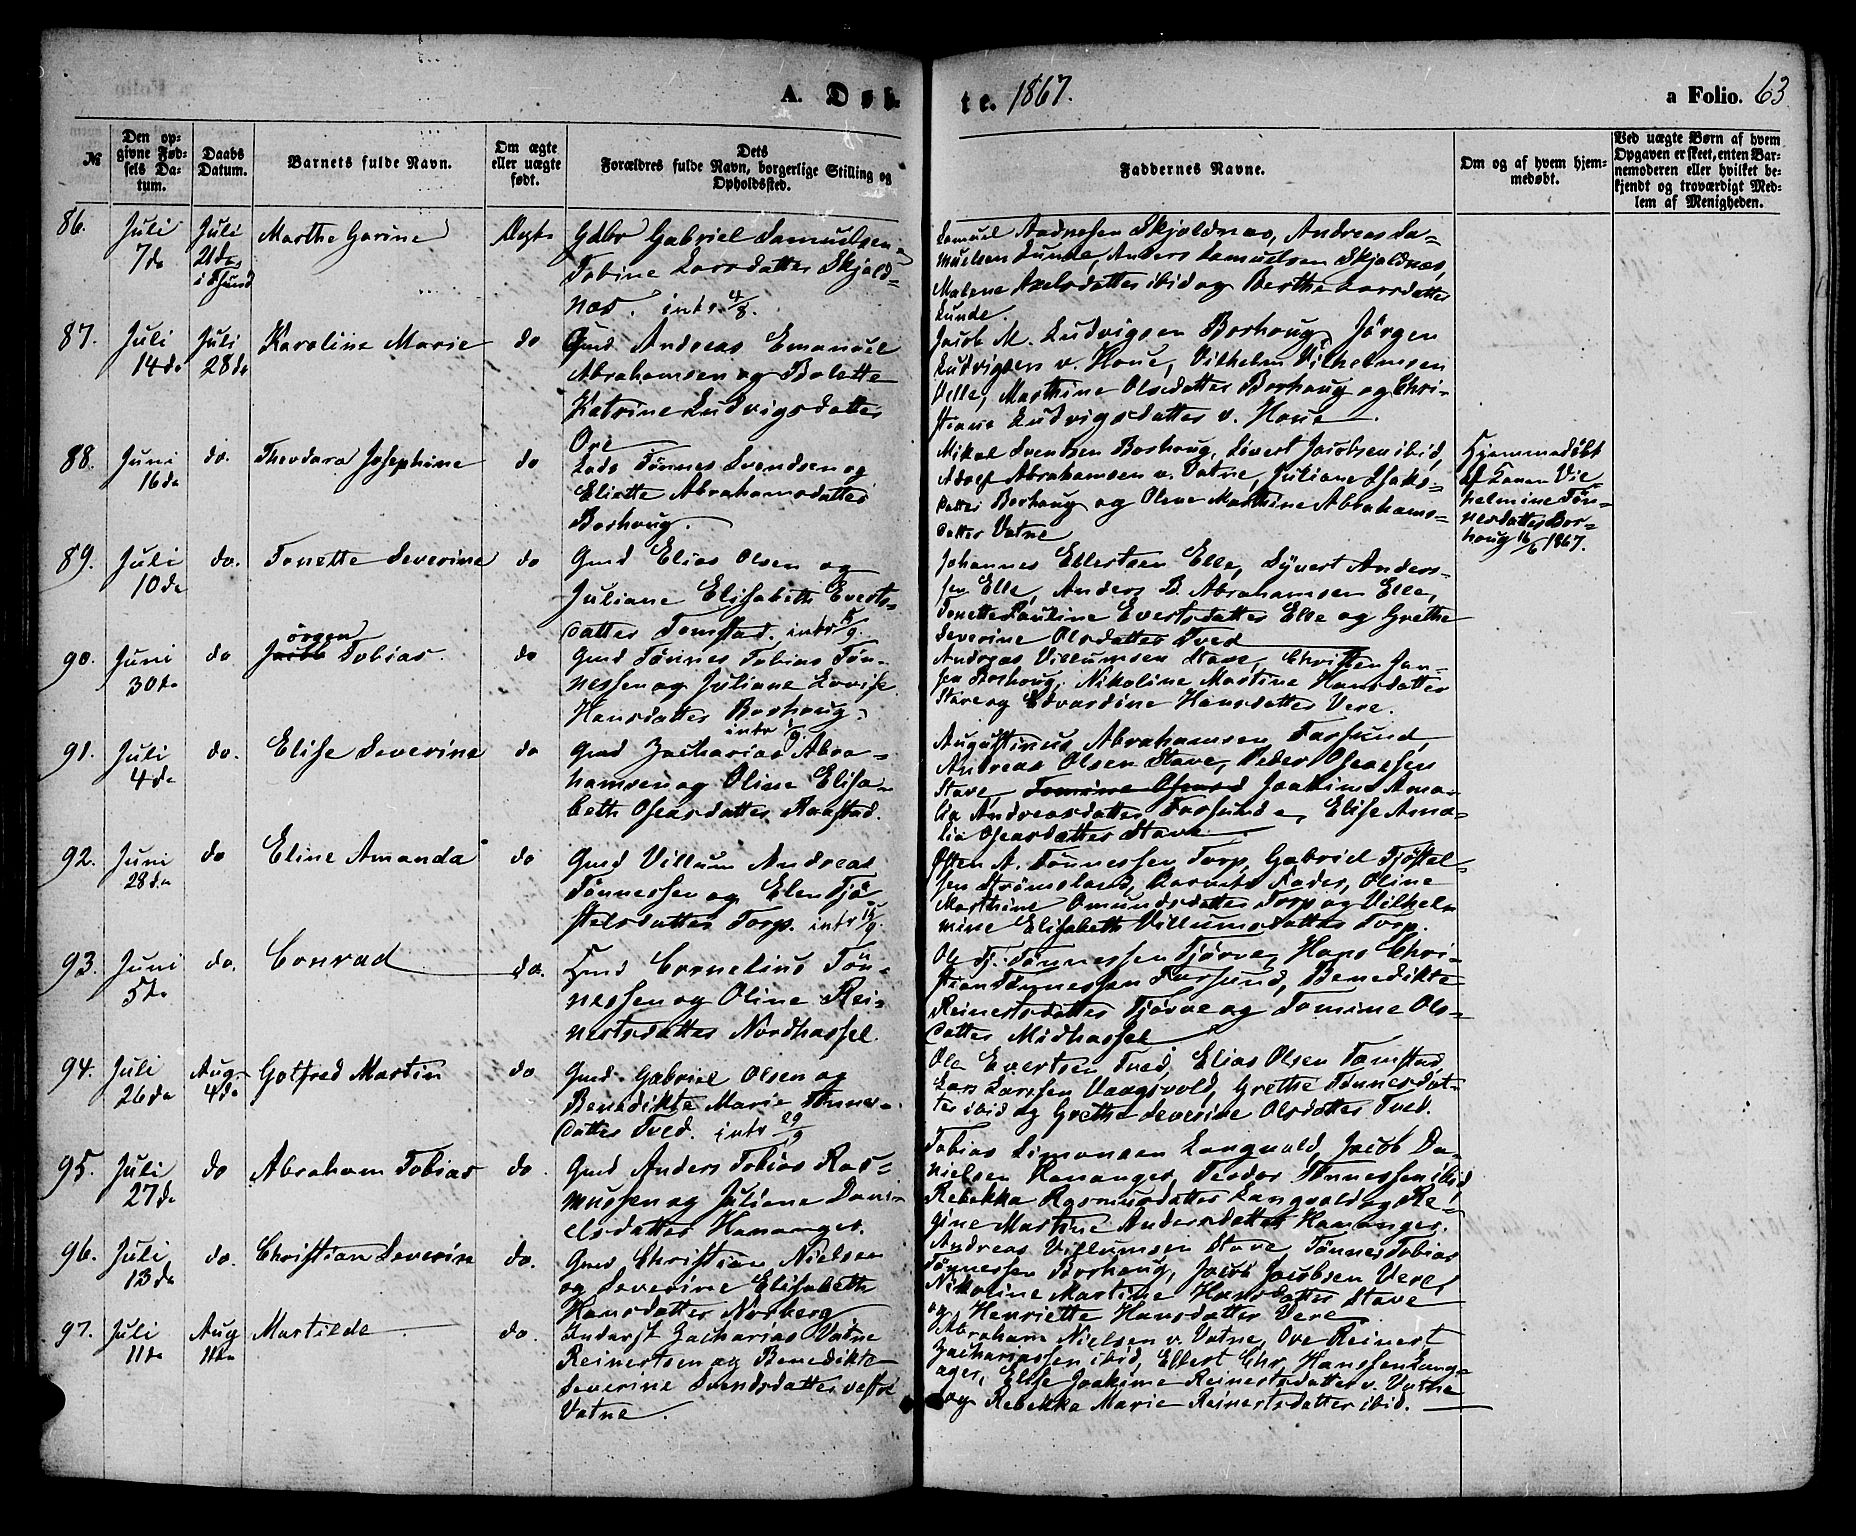 A. Døb-
te. 1867.
a Folio. 63
№
Den op-
givne Fød-
sels Da-
tum.
Daabs
Datum.
Barnets fulde Navn.
Om ægte
eller uægte
født.
Dets
Forældres fulde Navn, borgerlige Stilling og
Opholdssted.
Faddernes Navne.
Om og af hvem hjem-
medøbt.
Ved uægte Børn af hvem
Opgaven er skeet, enten Bar-
nemoderen eller hvilket be-
kjendt og troværdigt Med-
lem af Menigheden.
86.
Juli
7de
Juli
21des
i Fsund
Marthe Garine
Ægt
Gdbr Gabriel Samuelsen
Tobine Larsdatter Skjold-
næs. intr. 4/8.
Samuel Aadnesen Skjoldnæs, Andreas Sa-
muelsen Lunde, Anders Samuelsen Skjoldnæs,
Malene Axelsdatter ibid og Berthe Larsdatter
Lunde
87.
Juli
14de
Juli
28de
Karoline Marie
do
Gmd Andreas Emanuel
Abrahamsen og Bolette
Katrine Ludvigsdatter
Ore
Jacob M. Ludvigsen Borhoug, Jörgen
Ludvigsen v. Houe, Vilhelm Vilhelmsen
Velle, Marthine Olsdatter Borhoug og Chri-
stiane Ludvigsdatter v. Houe
88.
Juni
16de
do.
Theodara Josephine
do
Lods Tönnes Svendsen og
Eliette Abrahamsdatter
Borhoug.
Mikal Svendsen Borhoug, Sivert Jacobsen ibid,
Adolf Abrahamsen v. Vatne, Juliane Isaks-
datter Borhoug og Olene Marthine Abrahams-
datter Vatne
Hjemmedöbt
af Karen Vil-
helmine Tön-
nesdatter Bor-
houg 16/6 1867.
89.
Juli
10de
do.
Tonette Severine
do
Gmd Elias Olsen og
Juliane Elisabeth Everts-
datter Tomstad. intr 15/9.
Johannes Ellertsen Elle, Syvert Anders-
sen Elle, Anders B. Abrahamsen Elle,
Tonette Pauline Evertsdatter Elle og Grethe
Severine Olsdatter Tved
90.
Juni
30te
do
Jacob örgen Tobias.
do
Gmd Tönnes Tobias Tön-
nessen og Juliane Lovise
Hansdatter Borhoug.
intr 1/9.
Andreas Villumsen Stave, Christen Jan-
sen Borhoug, Nikoline Martine Hansdatter
Stave og Edvardine Hansdatter Vere.
91.
Juli
4de
do.
Elise Severine
do
Gmd Zacharias Abra-
hamsen og Oline Elisa-
beth Osearsdatter Raastad.
Augustinus Abrahamsen Farsund,
Andreas Olsen Stave, Peder Osearsen
Stave, Tomine Osearsd Joakime Ama-
lia Andreasdatter Farsund og Elise Ama-
lia Osearsdatter Stave
92.
Juni
28de
do
Eline Amanda
do
Gmd Villum Andreas
Tönnessen og Elen Tjö-
stelsdatter Torp. intr 15/9.
Osten A. Tönnessen Torp, Gabriel Tjöstel-
sen Strömsland, Barnets Fader, Oline
Marthine Omundsdatter Torp og Vilhel-
mine Elisabeth Villumsdatter Torp.
93.
Juni
5te
do.
Conrad
do.
Hmd Cornelius Tön-
nessen og Oline Rei-
nertsdatter Nordhassel.
Ole Tj. Tönnessen Tjörve, Hans Chri-
stian Tönnessen Farsund, Benedikte
Reinertsdatter Tjörve og Tomine Ols-
datter Midhassel
94.
Juli
26de
Aug.
4de
Gotfred Martin
do
Gmd Gabriel Olsen og
Benedikte Marie Tönnes-
datter Tved. intr 29/9
Ole Evertsen Tved, Elias Olsen Tomstad,
Lars Larssen Vaagsvold, Grethe Tönnesdat-
ter ibid og Grethe Severine Olsdatter Tved.
95.
Juli
27de
do
Abraham Tobias
do.
Gmd Anders Tobias Ras-
mussen og Juliane Dani-
elsdatter Hananger.
Tobias Simonsen Langvald, Jacob Da-
nielsen Hananger, Teodor Tönnessen ibid,
Rebekka Rasmusdatter Langvald og Re-
gine Martine Andersdatter Hananger.
96.
Juli
13de
do.
Christian Severin
do.
Gmd Christian Nielsen
og Severine Elisabeth
Hansdatter Norberg
Andreas Villumsen Stave, Tönnes Tobias
Tönnessen Borhoug, Jacob Jacobsen Vere,
Nikoline Martine Hansdatter Stave
og Henriette Hansdatter Vere
97.
Juli
11te
Aug
11te
Martilde
do.
Inderst Zacharias Vatne
Reinertsen og Benedikte
Severine Svendsdatter vestre
Vatne.
Abraham Nielsen v. Vatne, Ove Reinert
Zachariassen ibid, Ellert Chr. Hanssen Lang-
ager, Elise Joakime Reinertsdatter v. Vatne
og Rebekka Marie Reinertsdatter ibid.